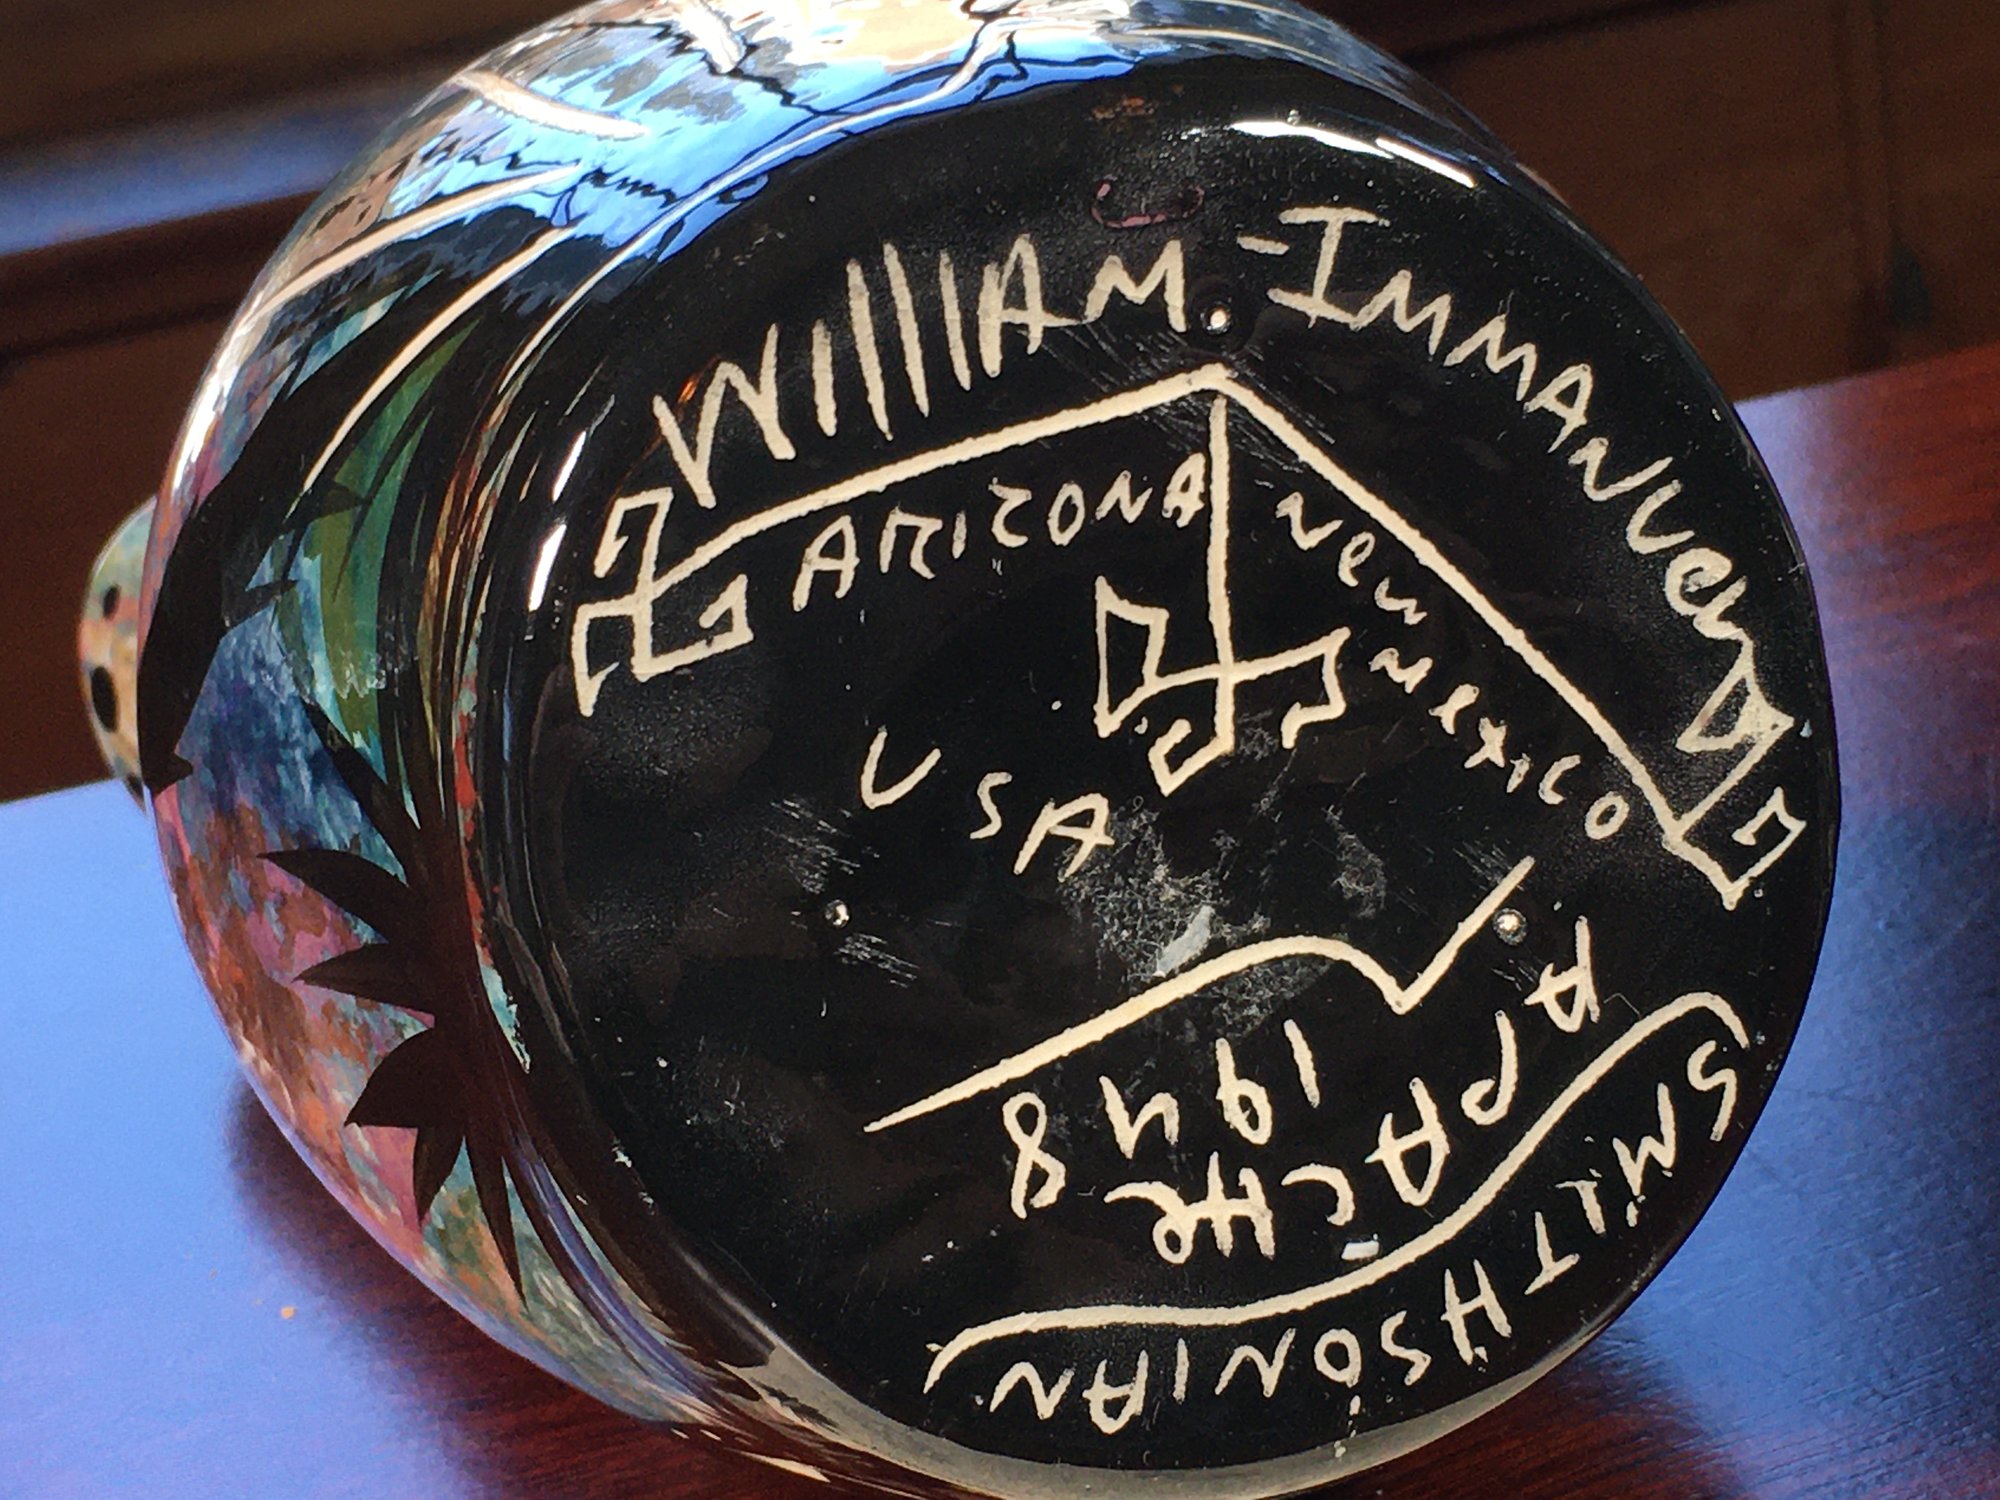 WILLIAM - IMMANUel
ARIZONA
New Mexico
USA
1948
APACHe
SMITHSONIAN